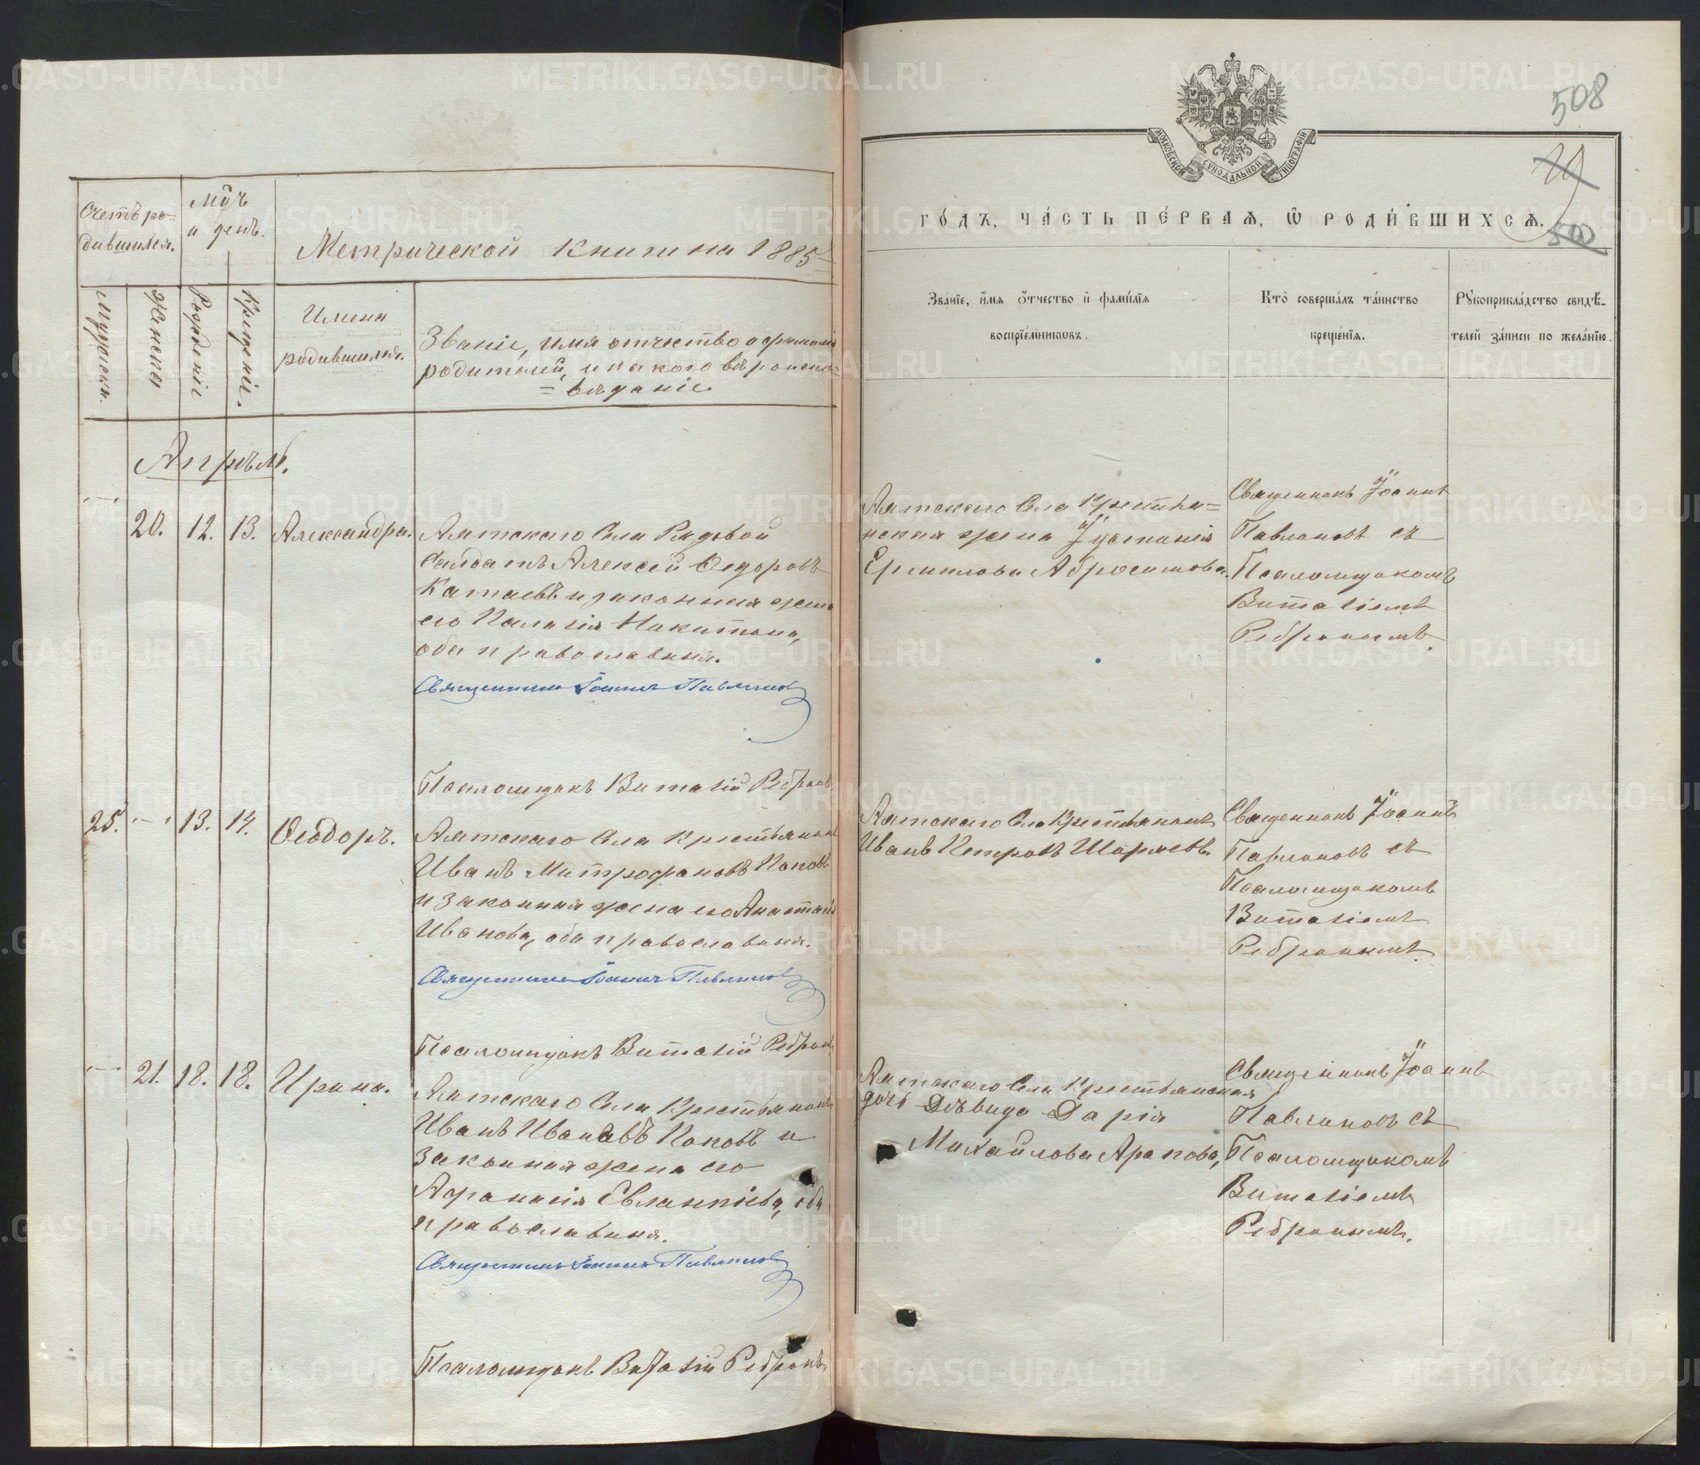 508
МОСКОВСКОЙ СУНОДАЛЬНОЙ ТИПОГРАФІИ
Счетъ ро=
дившихся.
Мѣць
и день.
Метрической книги на 1885
го́дъ, ча́сть пе́рваѧ, ѡ҆ роди́вшихсѧ.
500
Мужеска.
Женска.
Рожденіе
Крещеніе.
Имена
родившихся.
Званіе, имя отчество и фамилія
родителей, и какого вѣроиспо=
=вѣданіе
Зва́нїе, и҆́мѧ ѻ҆́тчество и҆ фами́лїѧ
воспрїе́мниковъ.
Кто̀ соверша́лъ та́инство
креще́нїѧ.
Рꙋкоприкла́дство свидѣ́-
телей за́писи по жела́нїю.
Апрѣль.
20. 12. 13. Александра.
Аятскаго Села Рядовой
Солдатъ Алексей Ѳедоровъ
Катаевъ и законная жена
его Палагія Никитина,
оба православныя.
Священникъ Іоаннъ Павлиновъ
Псаломщикъ Виталій Ребринъ
Аятскаго Села Крестья=
нская жена Іустинія
Ермилова Абросимова.
Священникъ Іоаннъ
Павлиновъ съ
Псаломщикомъ
Виталіемъ
Ребринымъ.
25. 13. 14. Ѳеодоръ.
Аятскаго Села Крестьянинъ
Иванъ Митрофановъ Поповъ
и законная жена его Анастасія
Иванова, оба православныя.
Священникъ Іоаннъ Павлиновъ
Псаломщикъ Виталій Ребринъ
Аятскаго Села Крестьянинъ
Иванъ Петровъ
Священникъ Іоаннъ
Павлиновъ съ
Псаломщикомъ
Виталіемъ
Ребринымъ.
21. 18. 18. Ирина.
Аятскаго Села Крестьянинъ
Иванъ Ивановъ Поповъ и
законная жена его
Афанасія Евлампіева, оба
православныя.
Священникъ Іоаннъ Павлиновъ
Псаломщикъ Виталій Ребринъ
Аятскаго Села Крестьянская
дочь Дѣвица Дарія
Михайлова Арапова,
Священникъ Іоаннъ
Павлиновъ съ
Псаломщикомъ
Виталіемъ
Ребринымъ.
METRIKI.GASO-URAL.RU